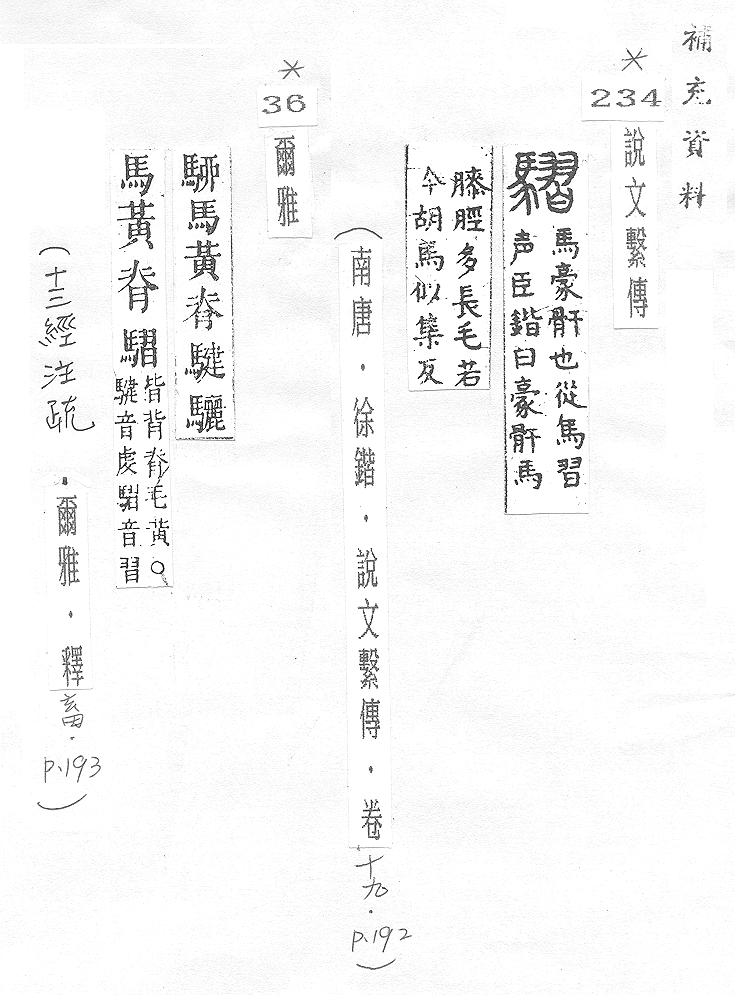 補充資料
*
234
說文繫傳
騽馬豪骭也從馬習
声臣鍇曰豪骭馬
膝脛多長毛若
今胡馬似集反
(南唐．徐鍇．說文繫傳．卷十九．p.192)
*
36
爾雅
馬黃脊騝驪
馬黃脊騽
皆背脊毛黃○
騝音虔騽音習
(十三經注疏．爾雅．釋畜．p.193)